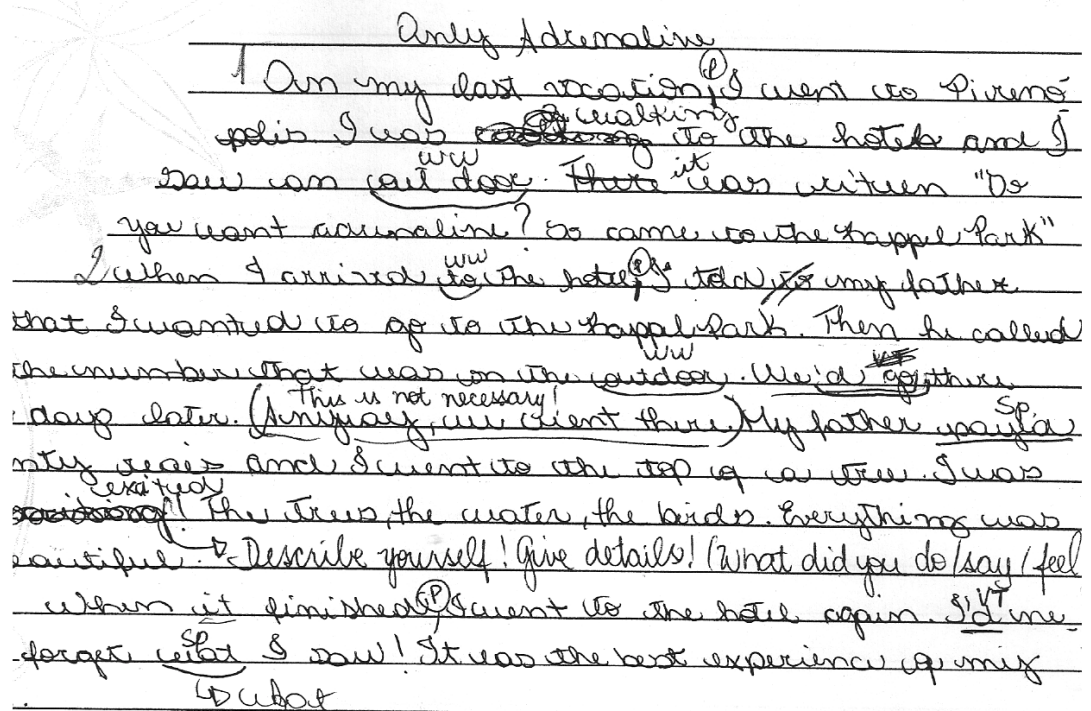 Only Adrenaline
1 On my last vocation, (P) I went to Pirenó
polis I was walking to the hotel and I
ww
saw an out door. There it was writen "Do
you want adrenaline? So come to the Rappel Park"
2 When I arrived to the hotel, (P) I told to my father
ww
that I wanted to go to the Rappal Park. Then he called
ww
the number that was on the outdoor. We'd go there
This is not necessary! SP
days later. (Anyway, we went there) My father payd
nty reais and I went to the top of a tree. I was
exited
! The trees, the water, the birds. Everything was
eautiful. Describe yourself! Give details! (What did you do/say/feel
When it finished, (P) I went to the hotel again. I'd ne
VT
SP
forget wat I saw! It was the best experience of my
what